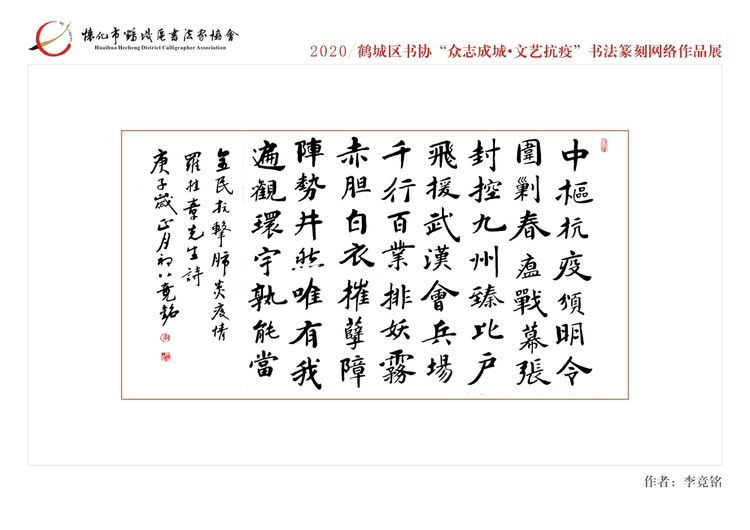 懷化市鶴城區書法家協會
Huaihua Hecheng District Calligrapher Association
2020/鹤城区书协“众志成城·文艺抗疫”书法篆刻网络作品展
中樞抗疫頒明令
圍剿春瘟戰幕張
封控九州臻比戶
飛援武漢會兵場
千行百業排妖霧
赤胆白衣摧孽障
陣勢井然唯有我
遍觀環宇孰能當
全民抗擊肺炎疫情
羅桂章先生詩
庚子歲正月初八竟銘
作者：李竟铭